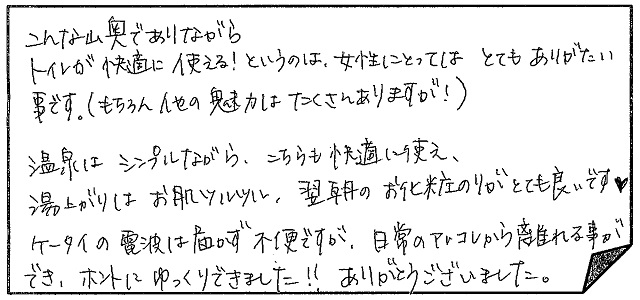 こんな山奥でありながら
トイレが快適に使える!というのは、女性にとってはとてもありがたい
事です。(もちろん他の魅力はたくさんありますが!)
温泉はシンプルながら、こちらも快適に使え、
湯上がりはお肌ツルツル、翌朝のお化粧のりがとても良いです♥
ケータイの電波は届かず不便ですが、日常のアレコレから離れる事が
でき、ホントにゆっくりできました!!ありがとうございました。